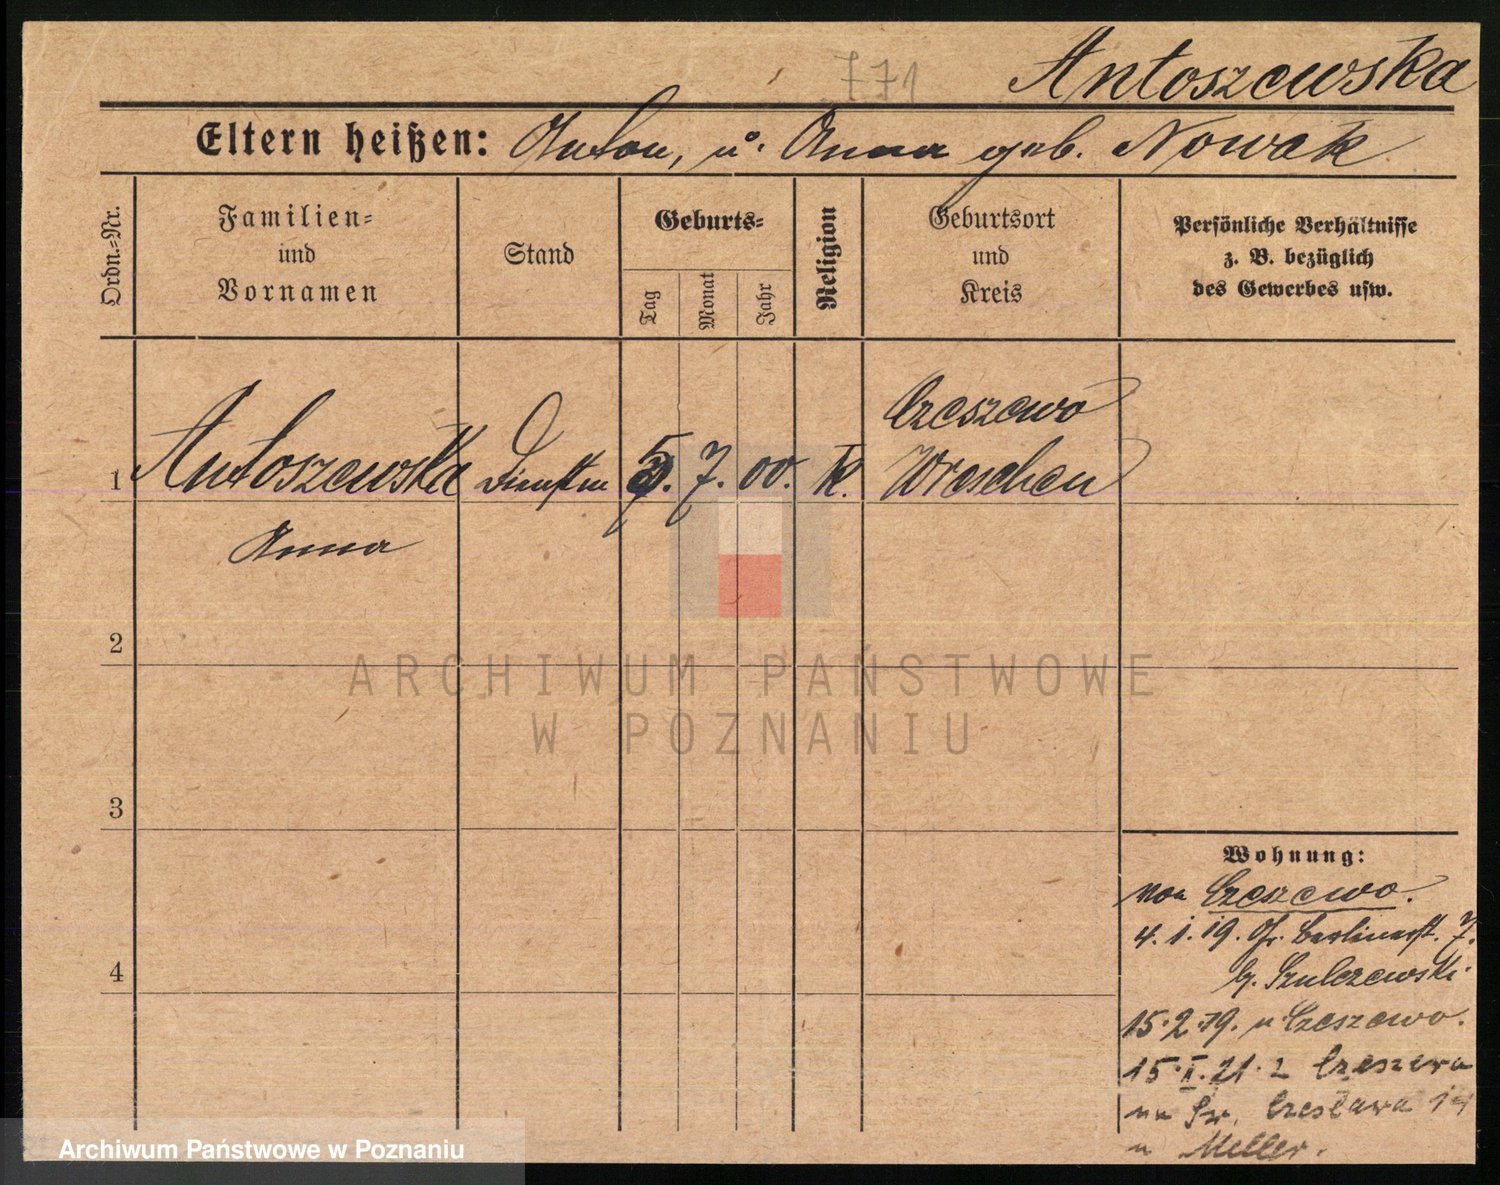 771
Antoszewska
Eltern heißen: Anton, u. Anna geb. Nowak
Ordn.-Nr.
Familien-
und
Vornamen
Stand
Geburts-
Tag
Monat
Jahr
Religion
Geburtsort
und
Kreis
Persönliche Verhältnisse
z. B. bezüglich
des Gewerbes usw.
Czeszewo
1 Antoszewska 5. 7. 00. K. Wreschen
Anna
2
ARCHIWUM PAŃSTWOWE
W POZNANIU
3
Wohnung:
von Czeszewo.
4. 1. 19. Gr. Berlinerst. 7.
b. Szulczewski.
4
15. 2. 19. n. Czeszewo.
15. I. 21. z Czeszewa
na Czesława 14
u Meller.
Archiwum Państwowe w Poznaniu